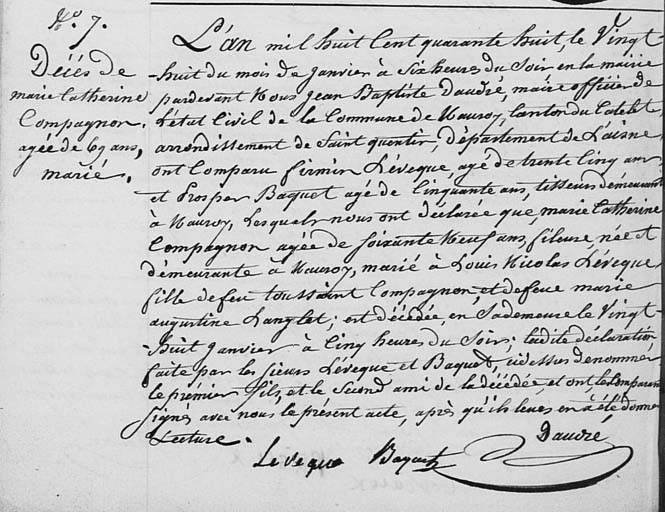 No. 7.
Décés de
marie Catherine
Compagnon,
agée de 69 ans,
marié.
L'an mil huit Cent quarante huit, le Vingt-
-huit du mois de Janvier à Six heures du Soir en la mairie
pardevant Nous Jean Baptiste Daudré, maire officier de
l'état Civil de la Commune de Nauroy, Canton du Catelet,
arrondissement de Saint quentin, département de L'aisne
ont Comparu firmin Lévêque, agé de trente Cinq ans
et Prosper Baquet agé de Cinquante ans, tisseurs démeurant
à Nauroy, Lesquels nous ont déclarée que, marie Catherine
Compagnon agée de Soixante Neuf ans, fileuse, née et
démeurante à Nauroy, marié à Louis Nicolas Lévêque
fille de feu toussaint Compagnon, et de feue marie
augustine Langlet; est décédée, en Sa demeure le Vingt-
-huit Janvier à Cinq heures du Soir; ladite déclaration
faite par les Sieurs Lévêque et Baquet, cidessus dénommer
le prémier fils, et le Second ami de la décédée, et ont les Comparant
Signés avec nous le présent acte, après qu'ils leurs en à été donner
Lecture.
Leveque Baquet Daudré